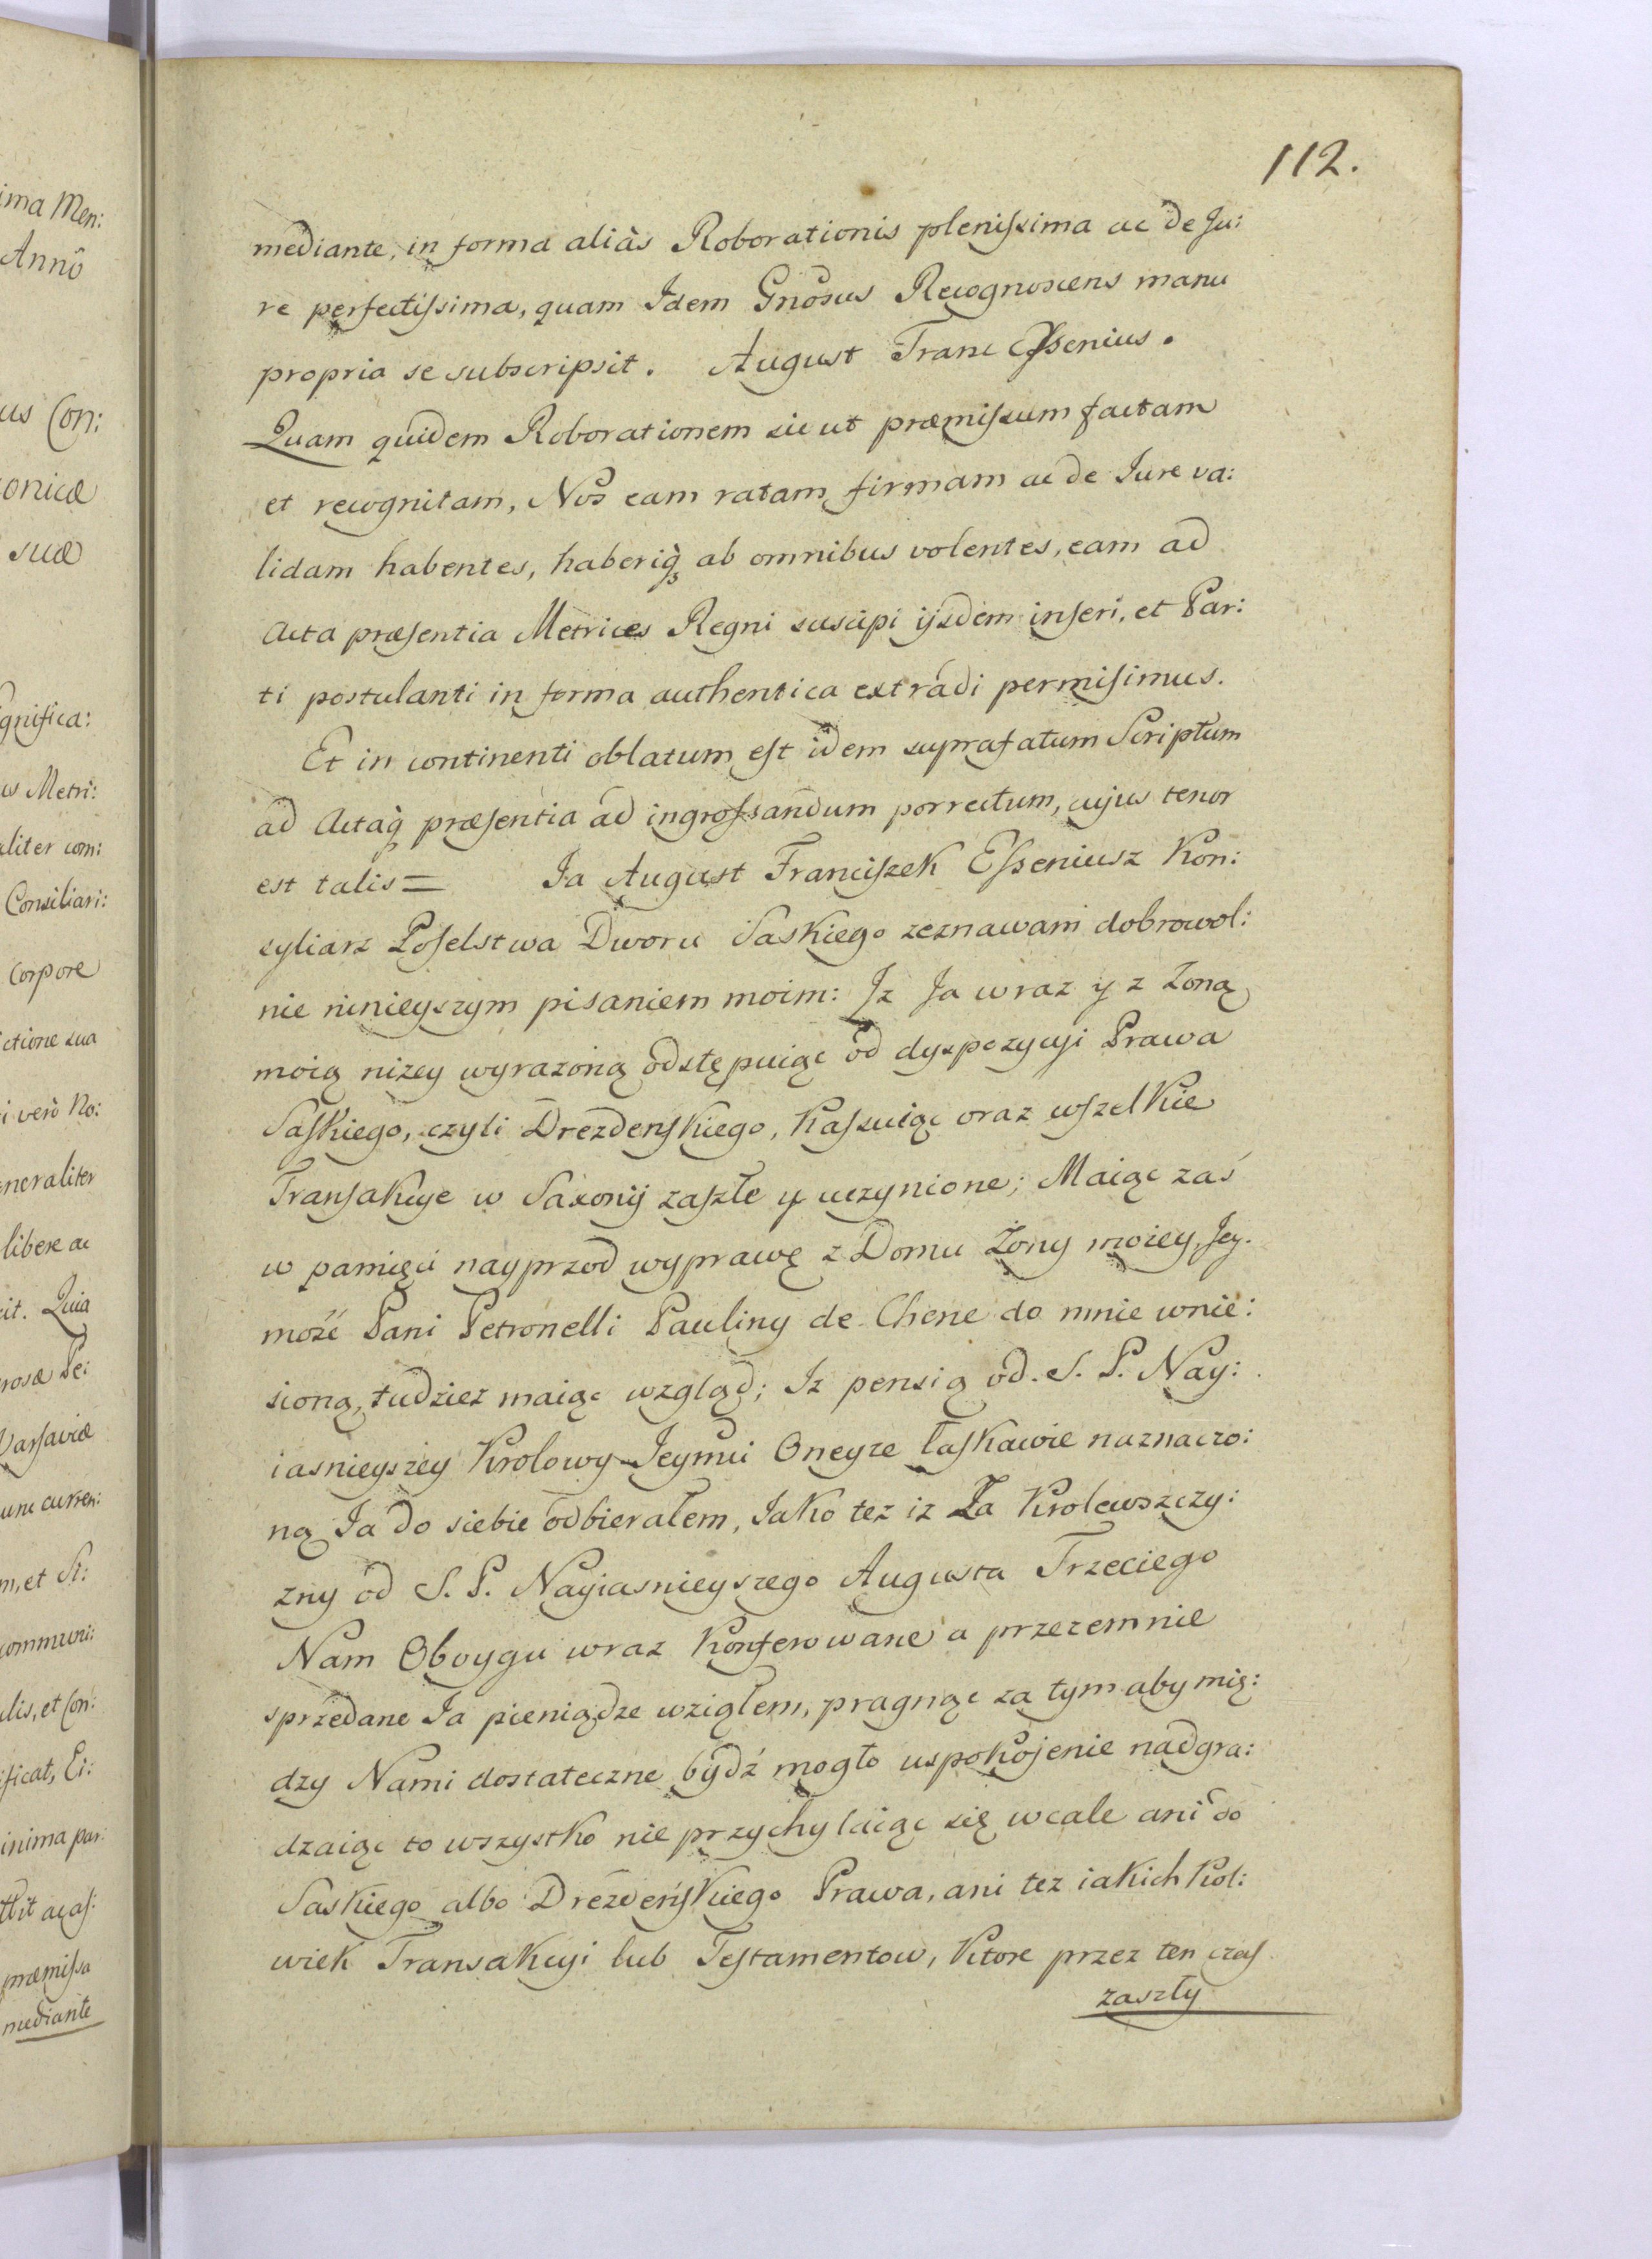 112.
mediante, in forma aliàs Roborationis plenissima ac de Ju:
re perfectissima, quam Idem Gnosus Recognoscens manu
propria se subscripsit. August Franc Essenius.
Quam quidem Roborationem sic ut præmissum factam
et recognitam, Nos eam ratam, firmam ac de Jure va:
lidam habentes, haberiq̃ ab omnibus volentes, eam ad
Acta præsentia Metrices Regni suscipi ijsdem inseri, et Par:
ti postulanti in forma authentica extradi permisimus.
Et in continenti oblatum est idem suprafatum Scriptum
ad Actaq̃ præsentia ad ingrossandum porrectum, cujus tenor
est talis = Ja August Franciszek Esseniusz Kon:
syliarz Poselstwa Dworu Saskiego zeznawam dobrowol:
nie ninieyszym pisaniem moim: Jz Ja wraz y z Zoną
moią nizey wyrazoną odstępuiąc od dyspozycyi Prawa
Saskiego, czyli Drezdenskiego, Kassuiąc oraz wszelkie
Transakcye w Saxonij zaszłe y uczynione; Maiąc zaś
w pamięci nayprzod wyprawę z Domu Żony moiey, Jey.
mość Pani Petronelli Pauliny de Chene do mnie wnie:
sioną, tudziez maiąc wzgląd; Iz pensią od S. P. Nay:
iasnieyszey Krolowy Jeymci Oneyze łaskawie naznaczo:
ną Ja do siebie odbierałem, Jako tez iz Za Krolewszczy:
zny od S. P. Nayiasnieyszego Augusta Trzeciego
Nam Oboygu wraz Konferowane a przezemnie
sprzedane Ja pieniądze wziąłem, pragnąc za tym aby mię:
dzy Nami dostateczne bydź mogło uspokojenie nadgra:
dzaiąc to wszystko nie przychylaiąc się wcale ani do
Saskiego albo Drezdeńskiego Prawa, ani tez iakichkol:
wiek Transakcyi lub Testamentow, Ktore przez ten czas
zaszły
ima Men:
Annô
us Con:
onicæ
suæ
gnifica:
us Metri:
aliter com:
Consiliari:
corpore
ctione sua
i verò No:
eneraliter
libere ac
cit. Quia
rosæ Pe:
Varsaviæ
unc curren:
m, et St:
communi:
lis, et Con:
ificat, Ei:
inima par:
præmissa
mediante